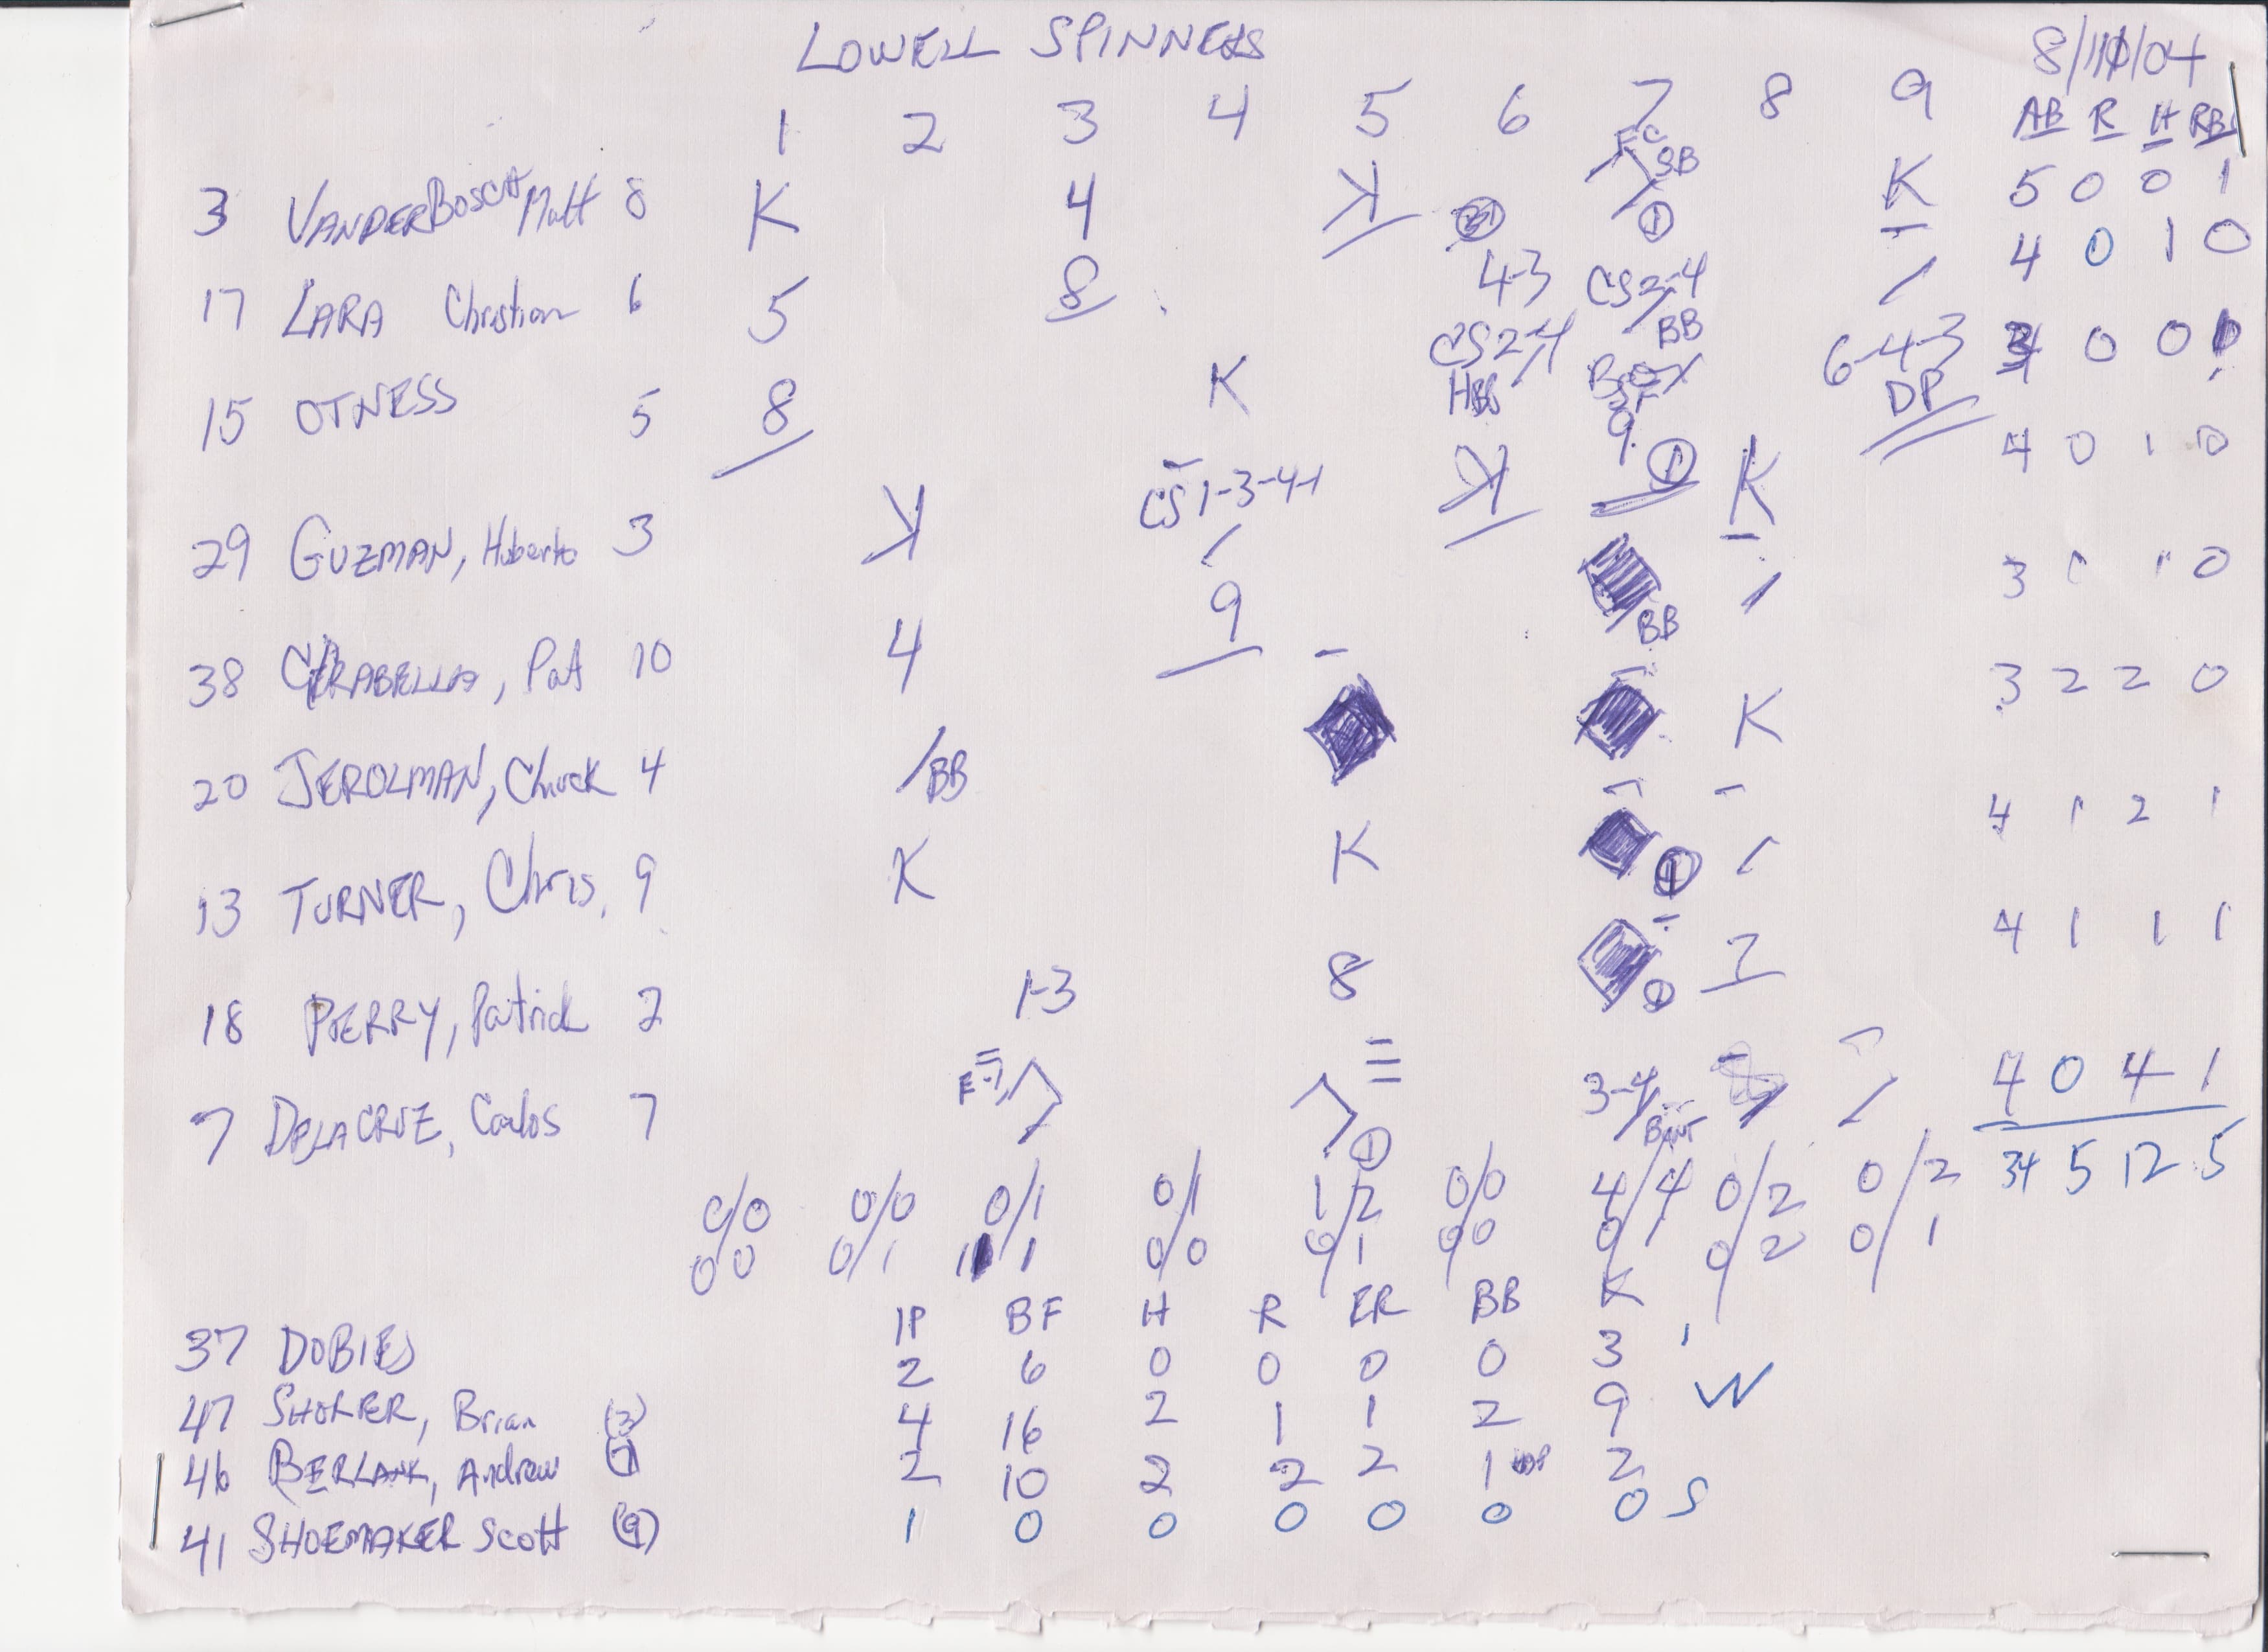 LOWELL SPINNERS 8/11/04
1 2 3 4 5 6 7 8 9 AB R H RBI
3 VANDERBOSCH Matt 8 K 4 K FC SB 1 K 5 0 0 1
17 LARA Christian 6 5 8 4-3 CS 2-4 4 0 1 0
15 OTNESS 5 8 K CS 2-4 HBP BB SF 9 1 6-4-3 DP 3 0 0 1
29 GUZMAN, Huberto 3 K CS 1-3-4-1 K K 4 0 1 0
38 CARABELLA, Pat 10 4 9 BB 3 1 1 0
20 JEROLMAN, Chuck 4 BB K 3 2 2 0
13 TURNER, Chris 9 K K 1 4 1 2 1
18 PERRY, Patrick 2 1-3 8 1 7 4 1 1 1
7 DELACRUZ, Carlos 7 1 3-4 BUNT 4 0 4 1
0/0 0/0 0/1 0/1 1/2 0/0 4/4 0/2 0/2 34 5 12 5
0/0 0/1 1/1 0/0 0/1 0/0 0/1 0/2 0/1
IP BF H R ER BB K
37 DOBIES 2 6 0 0 0 0 3
47 SHORER, Brian (3) 4 16 2 1 1 2 9 W
46 Andrew (7) 2 10 2 2 2 1 2
41 SHOEMAKER Scott (9) 1 0 0 0 0 0 0 S